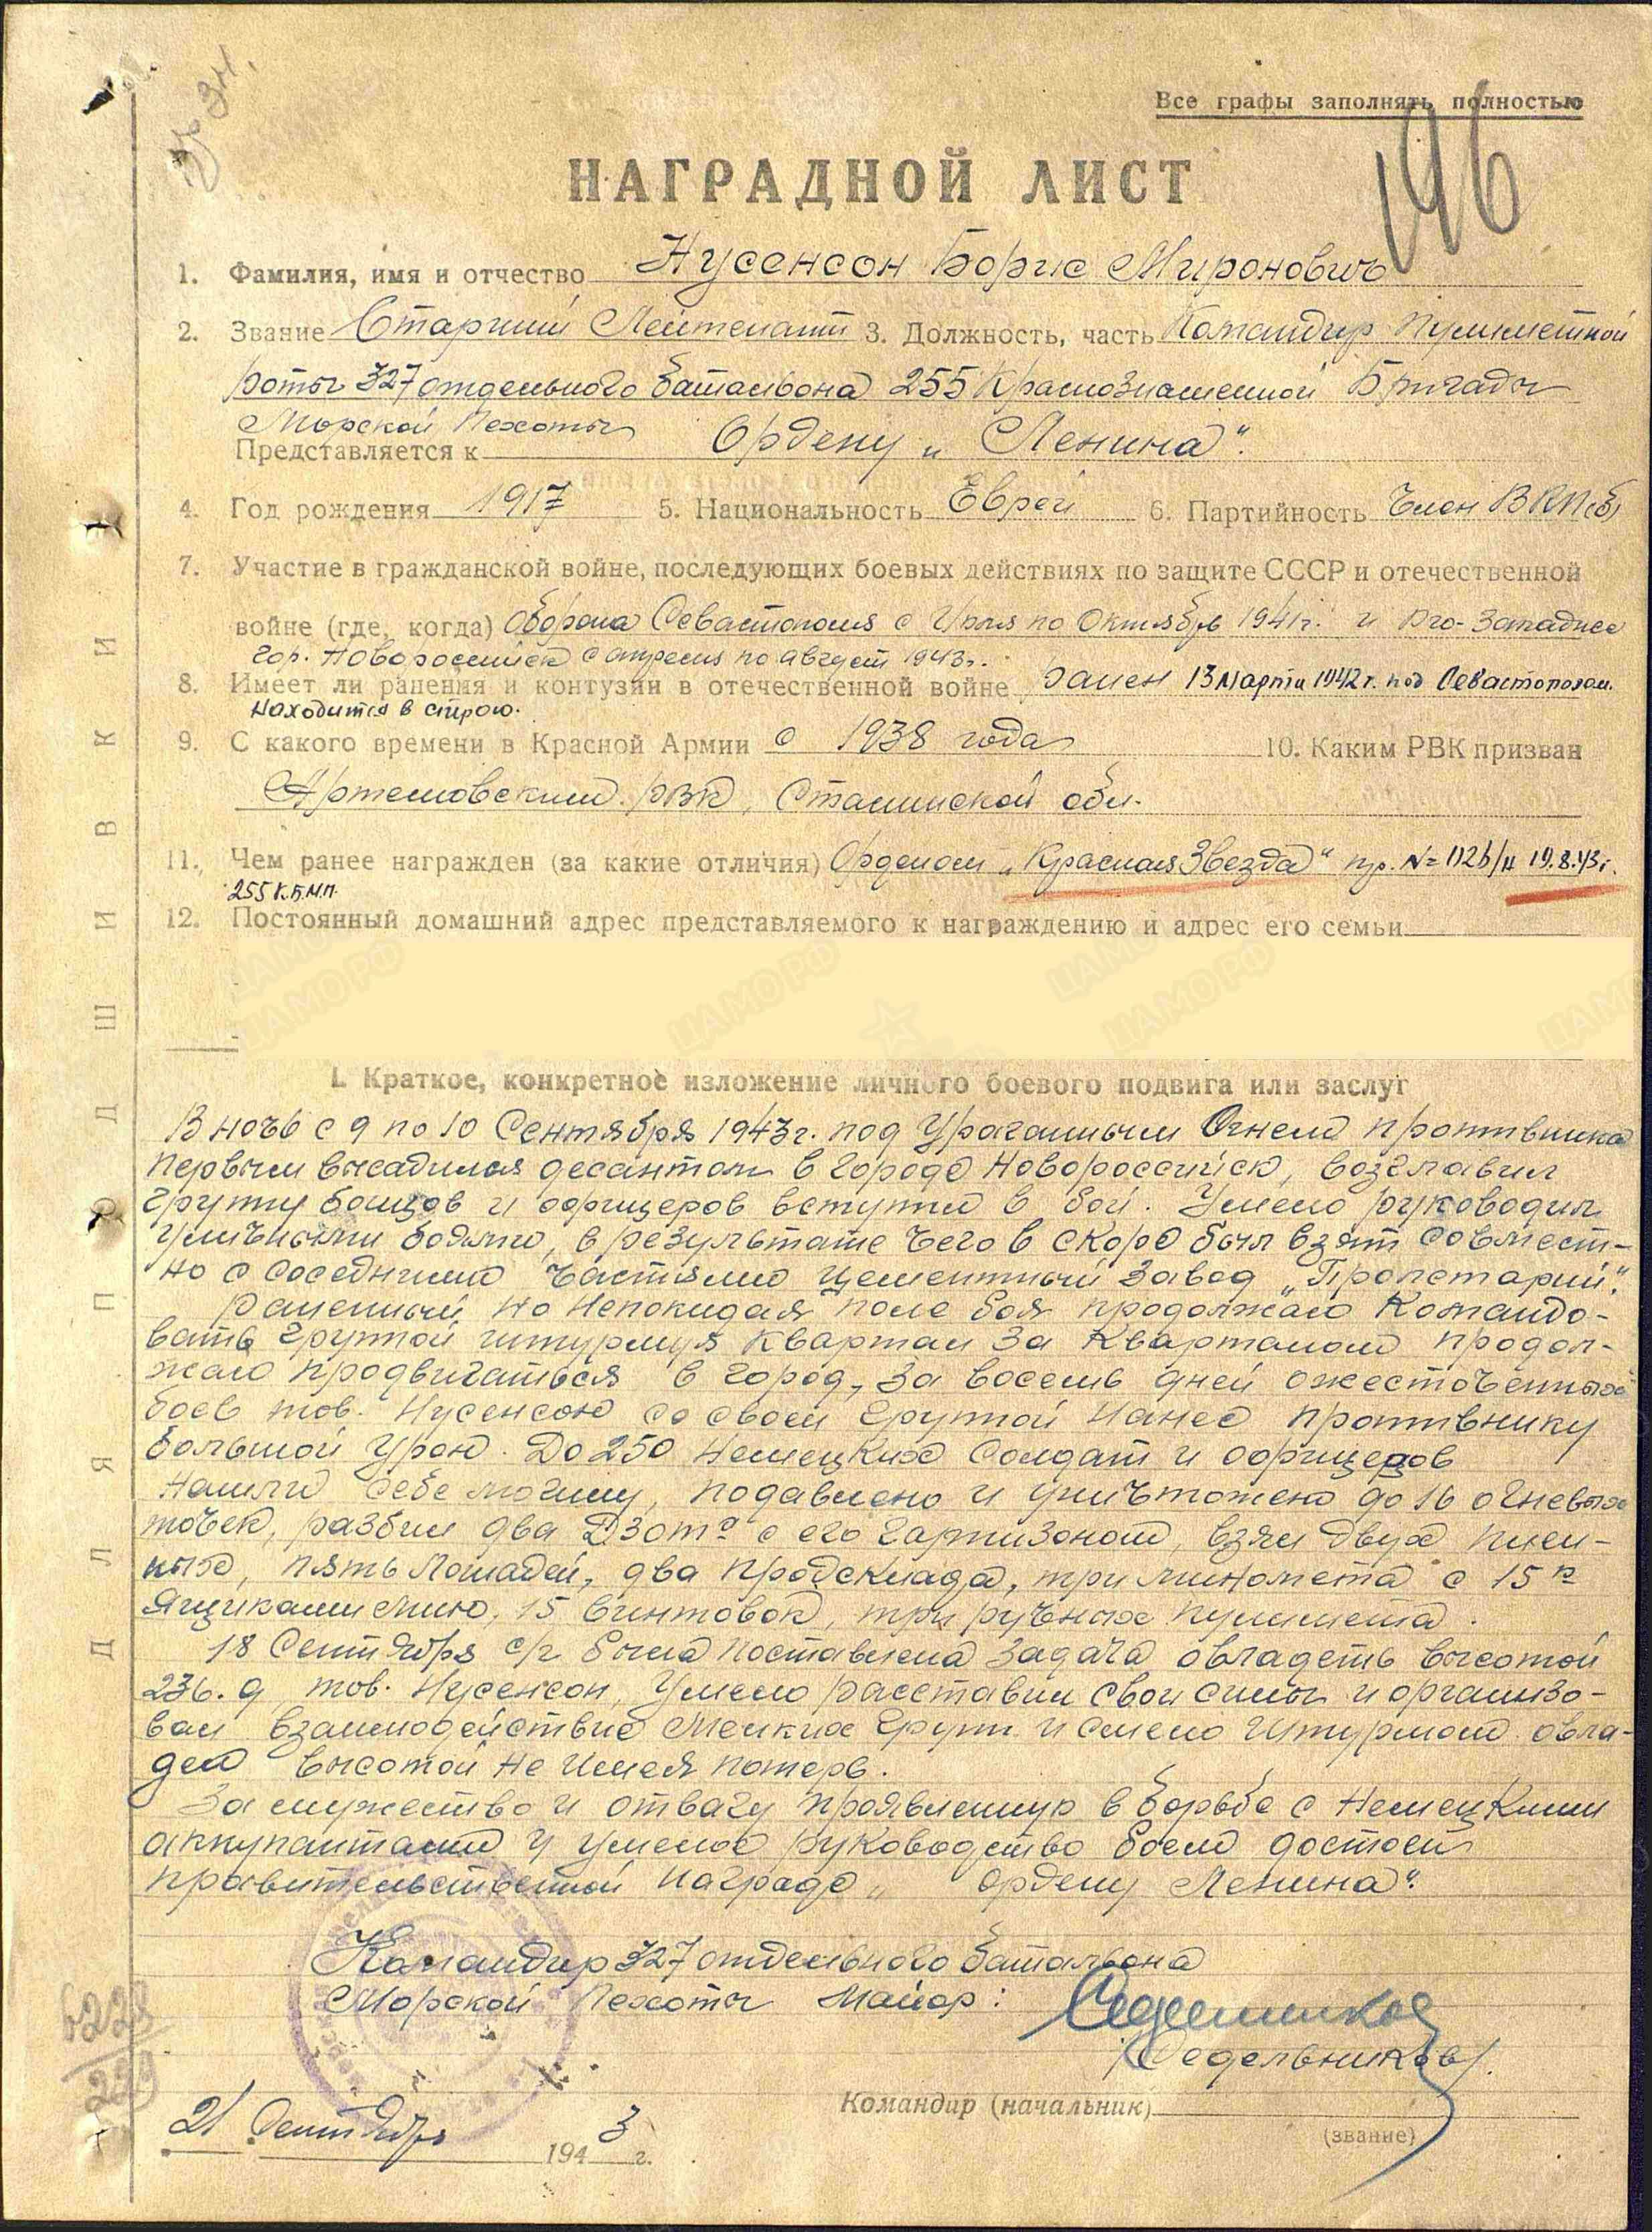 Все графы заполнять полностью
196
НАГРАДНОЙ ЛИСТ
1. Фамилия, имя и отчество Нусенсон Борис Миронович
2. Звание Старший Лейтенант 3. Должность, часть Командир пулеметной
роты 327 отдельного батальона 255 Краснознаменной Бригады
Морской Пехоты
Представляется к Ордену „Ленина“.
4. Год рождения 1917 5. Национальность Еврей 6. Партийность Член ВКП(б)
7. Участие в гражданской войне, последующих боевых действиях по защите СССР и отечественной
войне (где, когда) Оборона Севастополя с Июля по Октябрь 1941г. и Юго-Западнее
гор. Новороссийск с апреля по август 1943г.
8. Имеет ли ранения и контузии в отечественной войне Ранен 13 марта 1942г. под Севастополем.
Находится в строю.
9. С какого времени в Красной Армии с 1938 года 10. Каким РВК призван
Артемовским РВК, Сталинской обл.
11. Чем ранее награжден (за какие отличия) Орденом „Красная Звезда“ пр. № 112б/н 19.8.43г.
255 К.Б.М.П.
12. Постоянный домашний адрес представляемого к награждению и адрес его семьи
I. Краткое, конкретное изложение личного боевого подвига или заслуг
В ночь с 9 по 10 Сентября 1943г. под Ураганным Огнем противника
первым высадился десантом в городе Новороссийск, возглавил
группу бойцов и офицеров вступил в бой. Умело руководил
уличными боями, в результате чего в скоро был взят совмест-
но с соседними частями цементный завод „Пролетарий“.
Раненный но непокидая поле боя продолжал командо-
вать группой штурмуя квартал за кварталом продол-
жал продвигаться в город, за восемь дней ожесточенных
боев тов. Нусенсон со своей группой нанес противнику
большой урон. До 250 немецких солдат и офицеров
нашли себе могилу, подавлено и уничтожено до 16 огневых
точек, разбил два Дзота с его гарнизоном, взял двух плен-
ных, пять лошадей, два продсклада, три миномета с 15ю
ящиками мин, 15 винтовок, три ручных пулемета.
18 Сентября с/г была поставлена задача овладеть высотой
236.9 тов. Нусенсон, Умело расставил свои силы и организо-
вал взаимодействие мелких групп и смело штурмом овла-
дел высотой не имея потерь.
За мужество и отвагу проявленную в борьбе с немецкими
аккупантами и умелое руководство боем достоен
правительственной награде „ ордену Ленина“.
Командир 327 отдельного батальона
Морской Пехоты Майор: Седельников
/Седельников/.
Командир (начальник)
(звание)
21 Сентября 1943 г.
ДЛЯ ПОДШИВКИ
ЦАМО.РФ